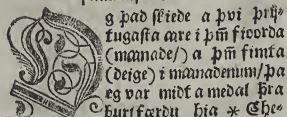 OG þad skiede a þui þrij-
tugasta are i þm̃ fioorda
(maanade/) a þm̃ fimta
(deige) i maanadenum/þa
eg var midt a medal þra
burtfærdu hia * Che-